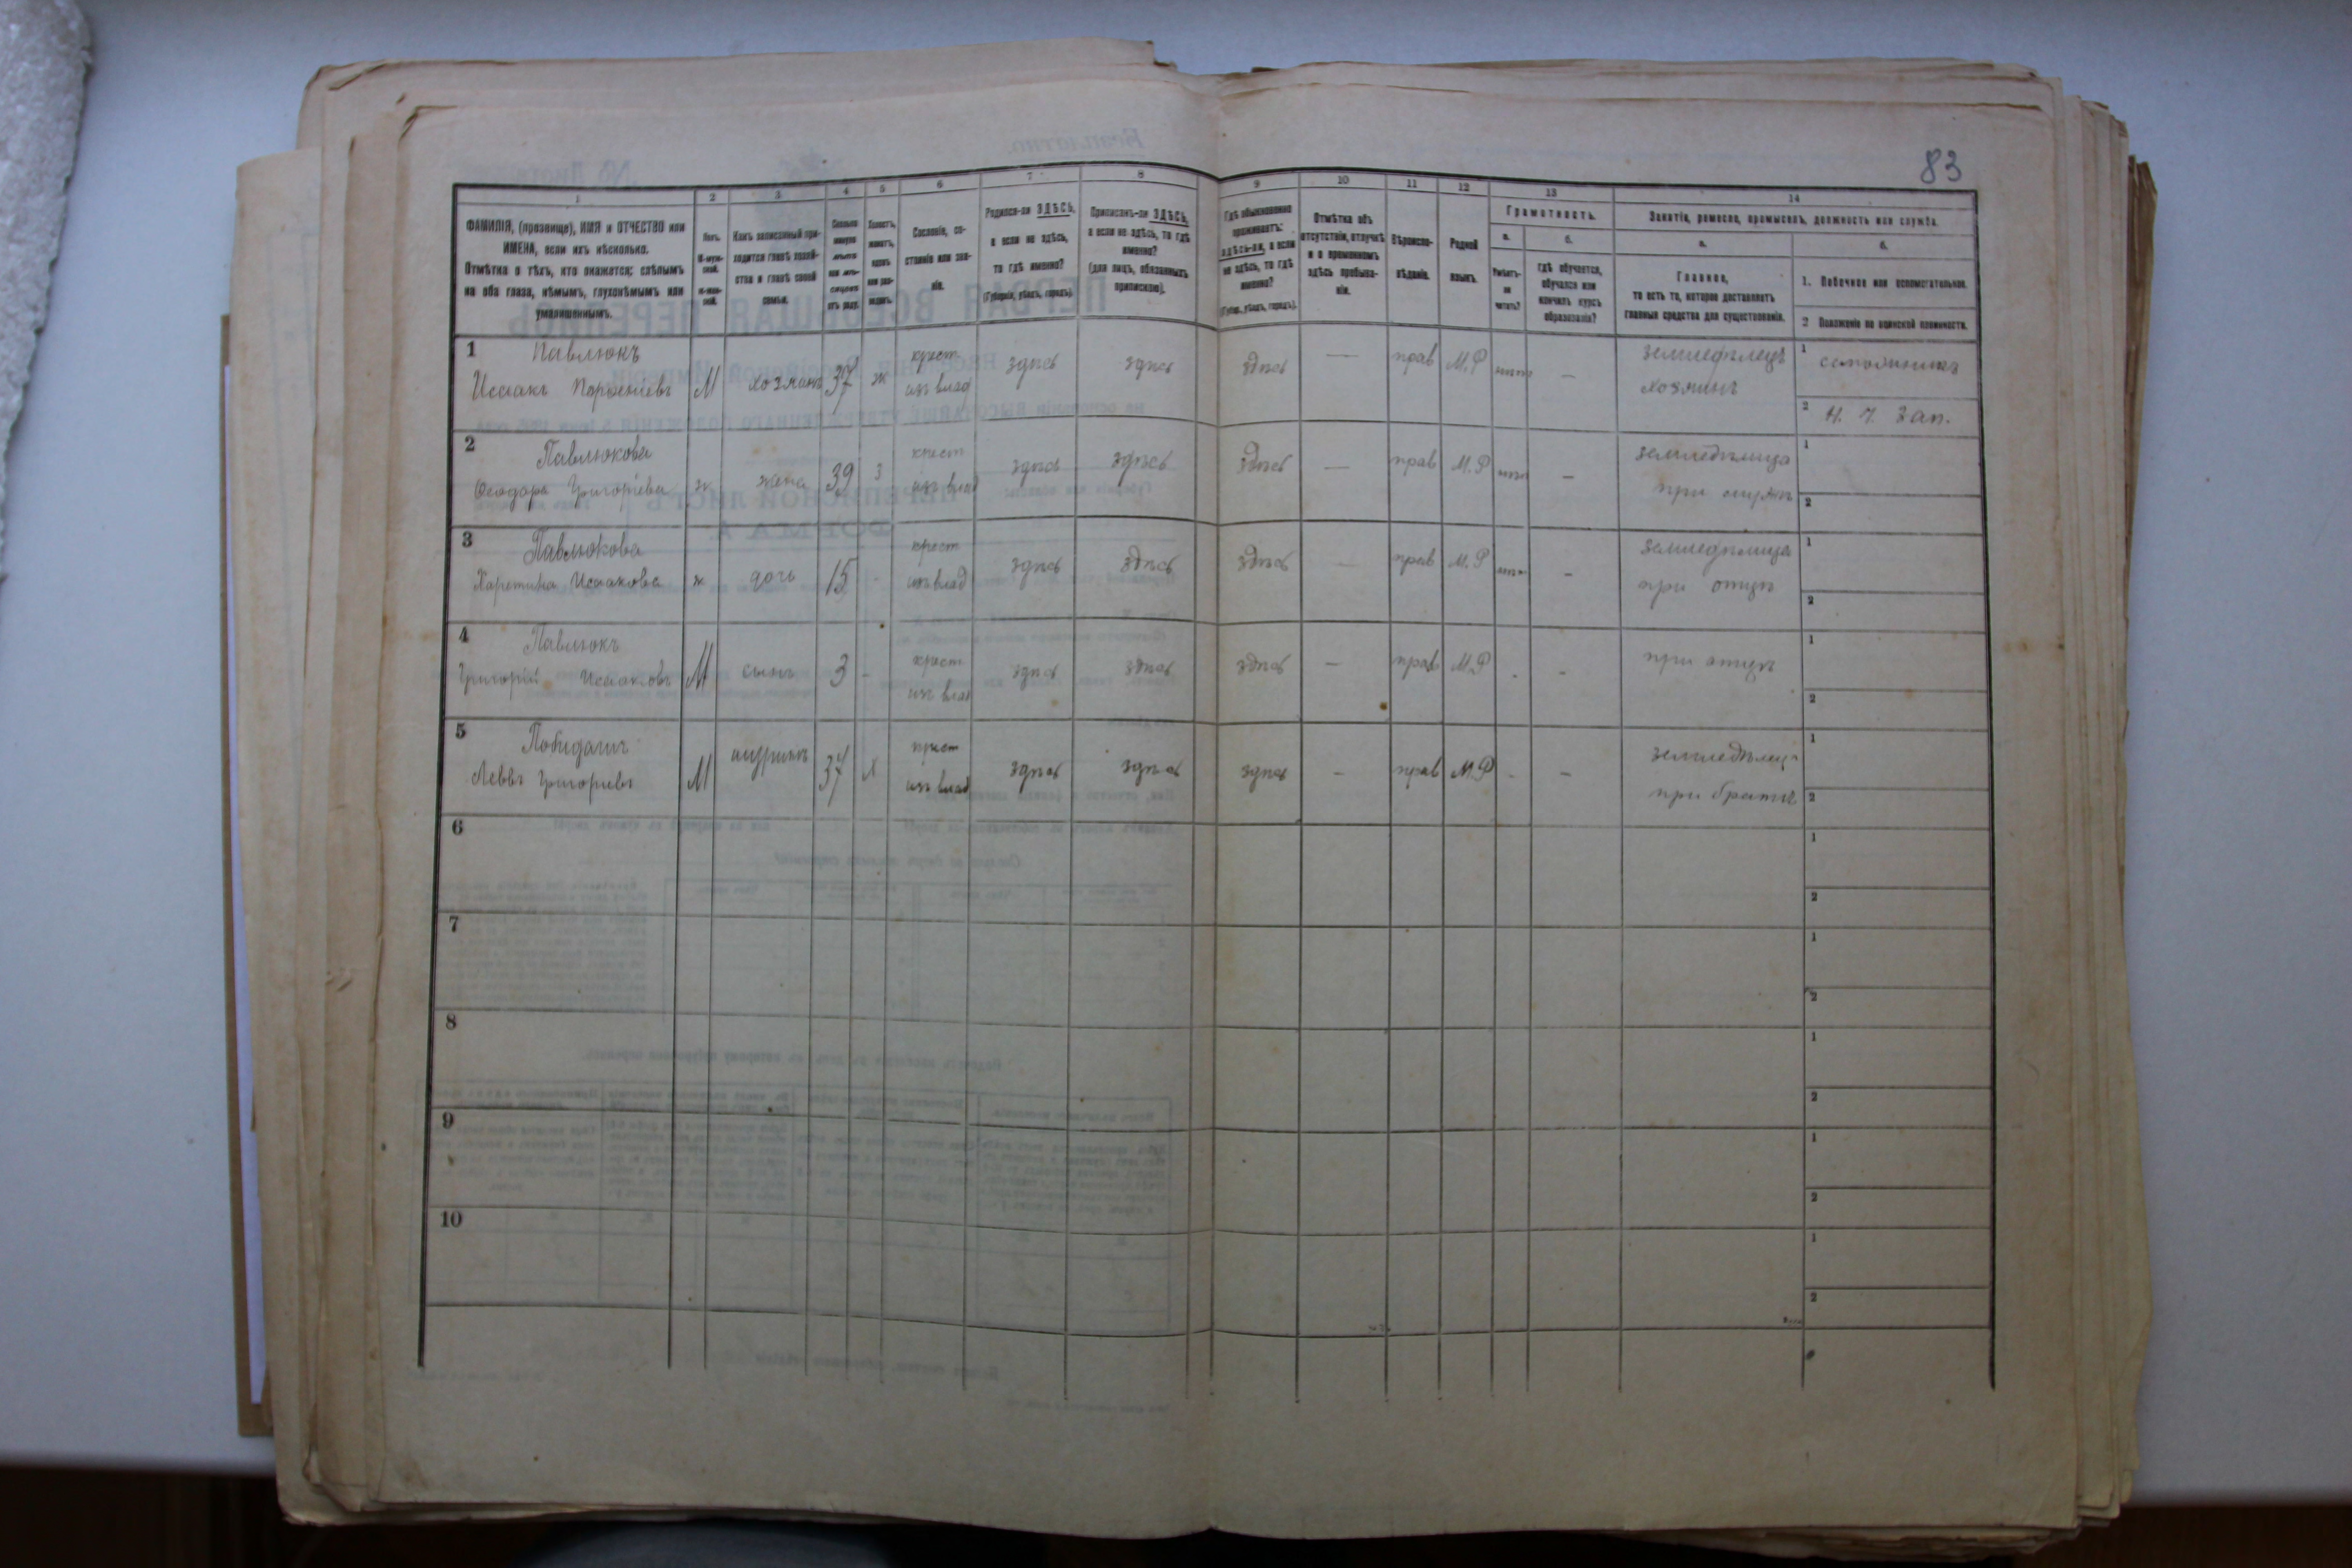 83
1 2 3 4 5 6 7 8 9 10 11 12 13 14
ФАМИЛІЯ, (прозвище), ИМЯ и ОТЧЕСТВО или
ИМЕНА, если ихъ нѣсколько.
Отмѣтка о тѣхъ, кто окажется: слѣпымъ
на оба глаза, нѣмымъ, глухонѣмымъ или
умалишеннымъ.
Полъ.
М-муж-
ской.
Ж-жен-
ской.
Какъ записанный при-
ходится главѣ хозяй-
ства и главѣ своей
семьи.
Сколько
минуло
лѣтъ
или мѣ-
сяцевъ
отъ роду.
Холостъ,
женатъ,
вдовъ
или раз-
веденъ.
Сословіе, со-
стояніе или зва-
ніе.
Родился-ли ЗДѢСЬ,
а если не здѣсь,
то гдѣ именно?
(Губернія, уѣздъ, городъ).
Приписанъ-ли ЗДѢСЬ,
а если не здѣсь, то гдѣ
именно?
(для лицъ, обязанныхъ
припискою).
Гдѣ обыкновенно
проживаетъ:
здѣсь-ли, а если
не здѣсь, то гдѣ
именно?
(Губер., уѣздъ, городъ).
Отмѣтка объ
отсутствіи, отлучкѣ
и о временномъ
здѣсь пребыва-
ніи.
Вѣроиспо-
вѣданіе.
Родной
языкъ.
Грамотность.
а. б.
Умѣетъ-
ли
читать?
гдѣ обучается,
обучался или
кончилъ курсъ
образованія?
Занятіе, ремесло, промыселъ, должность или служба.
а. б.
Главное,
то есть то, которое доставляетъ
главныя средства для существованія.
1. Побочное или вспомогательное.
2 Положеніе по воинской повинности.
1 Павлюкъ крест земледѣлецъ 1
Исаакъ М хозяинъ 37 ж изъ влад здѣсь здѣсь здѣсь — прав М.Р нѣтъ — хозяинъ
2 Н. Ч. Зап.
2 Павлюкова крест земледѣлица 1
Ѳеодора Григорьева ж жена 39 з изъ влад здѣсь здѣсь здѣсь — прав М.Р нѣтъ — при мужѣ 2
3 Павлюкова крест земледѣлица 1
Исаакова ж дочь 15 - изъ влад здѣсь здѣсь здѣсь — прав М.Р нѣтъ — при отцѣ 2
4 Павлюкъ крест при отцѣ 1
Григорій Исааковъ М сынъ 3 - изъ влад здѣсь здѣсь здѣсь — прав М.Р - - 2
5 крест земледѣлецъ 1
Григорьевъ М шуринъ 37 х изъ влад здѣсь здѣсь здѣсь — прав М.Р - — при братѣ 2
6 1
2
7 1
2
8 1
2
9 1
2
10 1
2